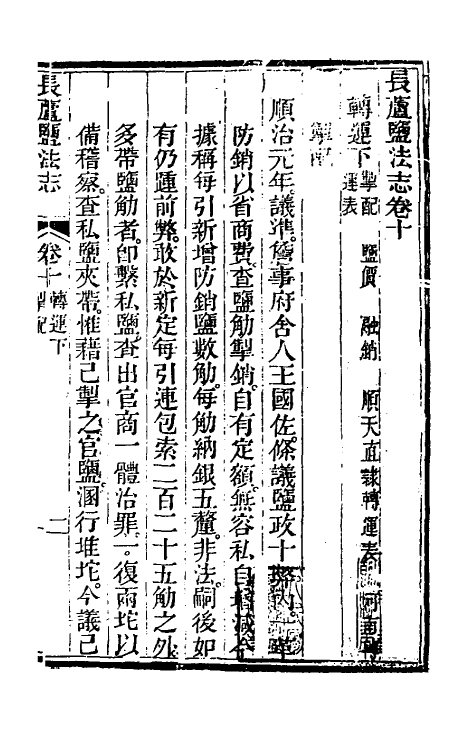 長蘆鹽法志卷十
轉運下 掣配 鹽價 融銷 順天直隸轉運表 河南轉
運表
掣配
順治元年議准詹事府舍人王國佐條議鹽政十
防銷以省商費查鹽觔掣銷自有定額無容私自增減今
據稱每引新增防銷鹽數觔每觔納銀五釐非法嗣後如
有仍踵前弊敢於新定每引連包索二百二十五觔之外
多帶鹽觔者卽繫私鹽查出官商一體治罪一復兩坨以
備稽察查私鹽夾帶惟藉已掣之官鹽溷行堆坨今議已
長蘆鹽法志 卷十 轉運下 掣配 一